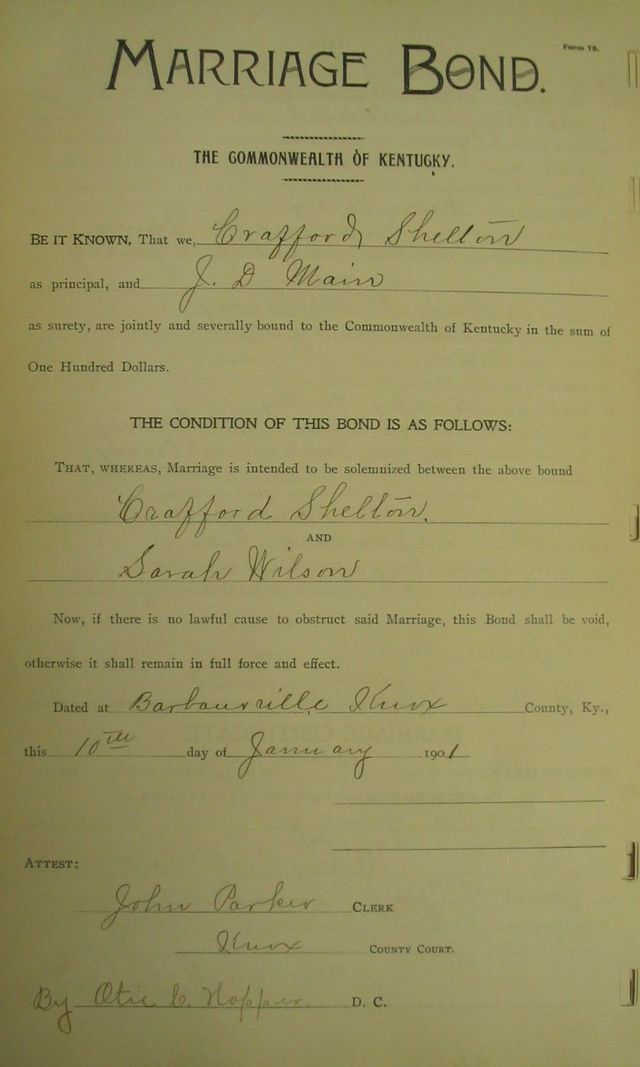 Form 18.
MARRIAGE BOND.
THE COMMONWEALTH OF KENTUCKY.
BE IT KNOWN, That we, Crafford Shelton
as principal, and J. D Main
as surety, are jointly and severally bound to the Commonwealth of Kentucky in the sum of
One Hundred Dollars.
THE CONDITION OF THIS BOND IS AS FOLLOWS:
THAT, WHEREAS, Marriage is intended to be solemnized between the above bound
Crafford Shelton.
AND
Sarah Wilson
Now, if there is no lawful cause to obstruct said Marriage, this Bond shall be void,
otherwise it shall remain in full force and effect.
Dated at Barbourville Knox County, Ky.,
this 10th day of January 1901
ATTEST:
John Parker CLERK
Knox COUNTY COURT.
By Otie C. Hopper. D. C.